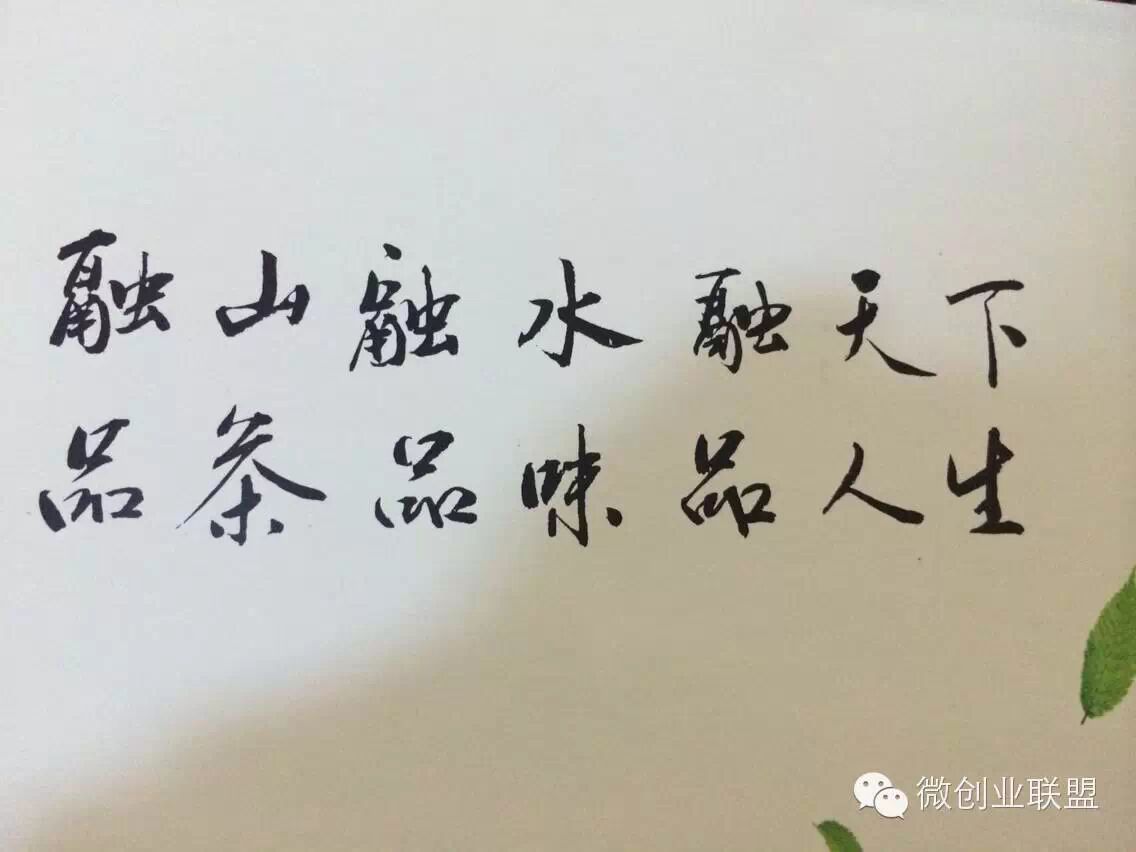 融山融水融天下
品茶品味品人生
微创业联盟